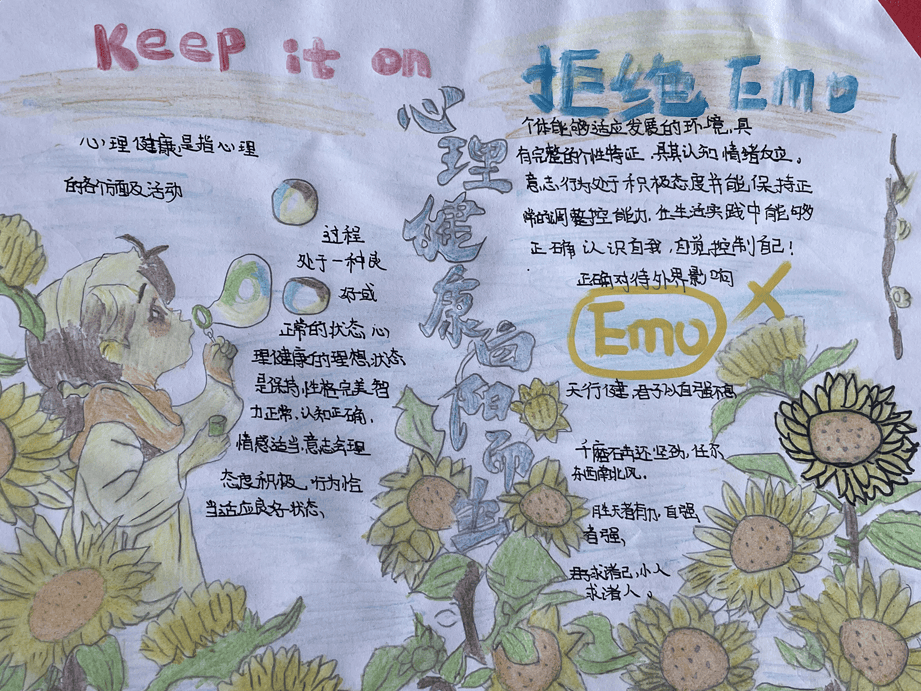 Keep it on
拒绝 Emo
心理健康向阳而生
心理健康是指心理
的各个方面及活动
过程
处于一种良
好或
正常的状态,心
理健康的理想状态
是保持性格完美,智
力正常,认知正确,
情感适当,意志合理
态度积极,行为恰
当适应良好状态、
个体能够适应发展的环境,具
有完整的个性特征,具其认知情绪反应。
意志行为处于积极态度并能保持正
常的调整控能力,在生活实践中能够
正确认识自我,自觉控制自己!
正确对待外界影响
Emo
天行健,君子以自强不息
千磨万击还坚劲,任尔
东西南北风。
胜天者有力,自强
者强、
君子求诸己,小人
求诸人。